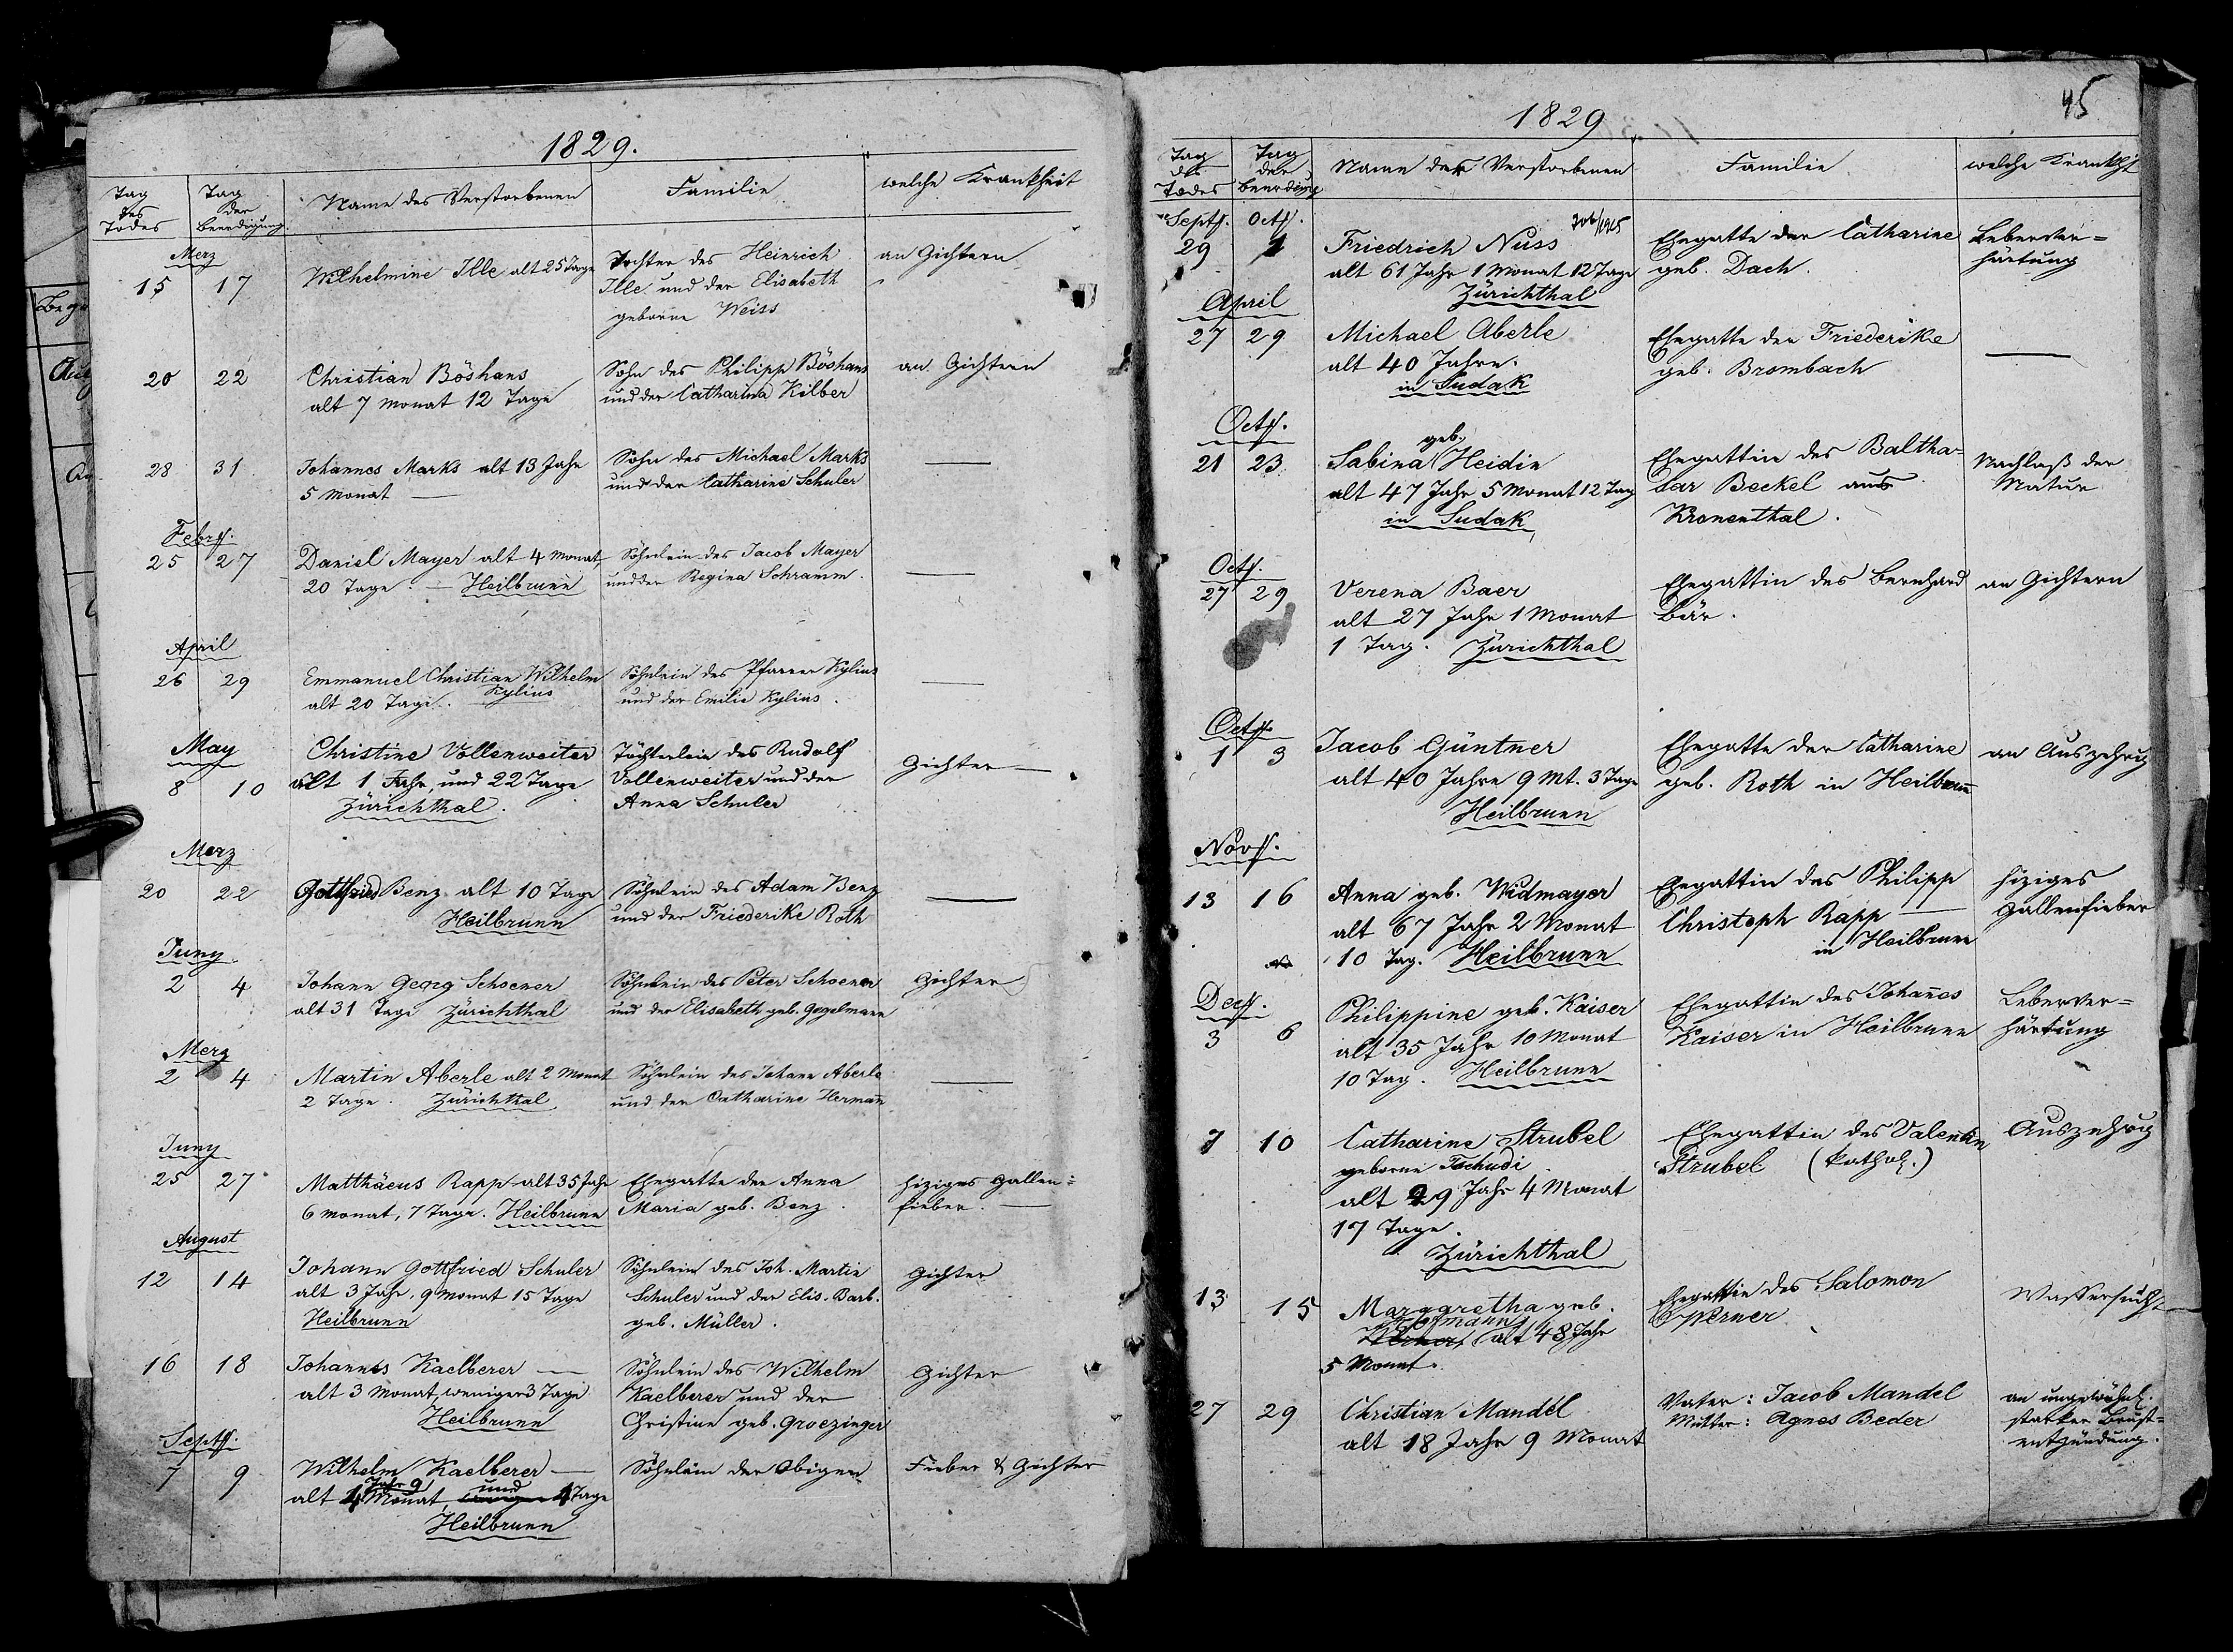 1829.
Tag des Todes
Tag der Beerdigung
Name des Verstorbenen
Familie
welche Krankheit
Merz
15 17 Wilhelmine Ille alt 25 Tage
Tochter des Heinrich
Ille und der Elisabeth
geborne Weiss
an Gichtern
20 22 Christian Böshans
alt 7 Monat 12 Tage
Sohn des Philipp Böshans
und der Catharina Hilber
an Gichtern
28 31 Johannes Marks alt 13 Jahr
5 Monat —
Sohn des Michael Marks
und der Catharine Schuler
—
Febr.
25 27 Daniel Mayer alt 4 Monat
20 Tage. — Heilbrunn
Söhnlein des Jacob Mayer
und der Regina Schramm.
—
April
26 29 Emmanuel Christian Wilhelm
Kylius
alt 20 Tage.
Söhnlein des Pfarrer Kylius
und der Emilie Kylius.
—
May
8 10 Christine Vollenweiter
alt 1 Jahr, und 22 Tage
Zürichthal.
Töchterlein des Rudolf
Vollenweiter und der
Anna Schuler
Gichter —
Merz
20 22 Gottfried Benz. alt 10 Tage
Heilbrunn
Söhnlein des Adam Benz
und der Friederike Roth
—
Juny
2 4 Johann Georg Schoener
alt 31 Tage Zürichthal
Söhnlein des Peter Schoener
und der Elisabeth geb. Gogelmann
Gichter
Merz
2 4 Martin Aberle alt 2 Monat
2 Tage. Zürichthal
Söhnlein des Johann Aberle
und der Catharine Hermann
—
Juny
25 27 Matthäeus Rapp alt 35 Jahr
6 Monat, 7 Tage. Heilbrunn
Ehegatte der Anna
Maria geb. Benz.
hiziges Gallen=
fieber. —
August
12 14 Johann Gottfried Schuler
alt 3 Jahr, 9 Monat 15 Tage
Heilbrunn
Söhnlein des Joh. Martin
Schuler und der Elis. Barb.
geb. Müller.
Gichter
16 18 Johannes Kaelberer —
alt 3 Monat weniger 3 Tage
Heilbrunn
Söhnlein des Wilhelm
Kaelberer und der
Christine geb. Groezinger
Gichter
Sept.
7 9 Wilhelm Kaelberer —
Jahr 9 und
alt 1 Monat, 4 Tage
Heilbrunn
Söhnlein der Obigen
Fieber & Gichter
45
1829
Tag des Todes
Tag der Beerdigung
Name des Verstorbenen
Familie
welche Krankht
Sept. Oct.
29 1 Friedrich Nuss
alt 61 Jahr 1 Monat 12 Tage
Zürichthal
Ehegatte der Catharine
geb. Dach.
Leberver=
härtung
April
27 29 Michael Aberle
alt 40 Jahre.
in Sudak
Ehegatte der Friederike
geb. Brombach
—
Oct.
geb.
21 23 Sabina Heidin
alt 47 Jahr 5 Monat 12 Tag
in Sudak
Ehegattin des Baltha=
sar Beckel aus
Kronenthal.
Nachlaß der
Natur
Oct.
27 29 Verena Baer
alt 27 Jahr 1 Monat
1 Tag. Zürichthal
Ehegattin des Bernhard
Bär.
an Gichtern
Oct.
1 3 Jacob Güntner
alt 40 Jahre 9 Mt. 3 Tage
Heilbrunn
Ehegatte der Catharine
geb. Roth in Heilbrunn
an Auszehrug
Nov.
13 16 Anna geb. Widmayer
alt 67 Jahr 2 Monat
10 Tag. Heilbrunn
Ehegattin des Philipp
Christoph Rapp —
in Heilbrunn
hiziges
Gallenfieber
Dec.
3 6 Philippine geb. Kaiser
alt 35 Jahr 10 Monat
10 Tag. Heilbrunn
Ehegattin des Johannes
Kaiser in Heilbrunn
Leberver=
härtung
7 10 Catharine Strubel
geborne Tschudi
alt 29 Jahr 4 Monat
17 Tage.
Zürichthal
Ehegattin des Valentin
Strubel (kathol.)
Auszehrug
13 15 Marggretha geb.
Hofmann
Werner alt 48 Jahr
5 Monat.
Ehegattin des Salomon
Werner
Wassersucht
27 29 Christian Mandel
alt 18 Jahr 9 Monat
Vater: Jacob Mandel
Mutter: Agnes Beder
an ungewöhnl.
starker Brust=
entzündung.